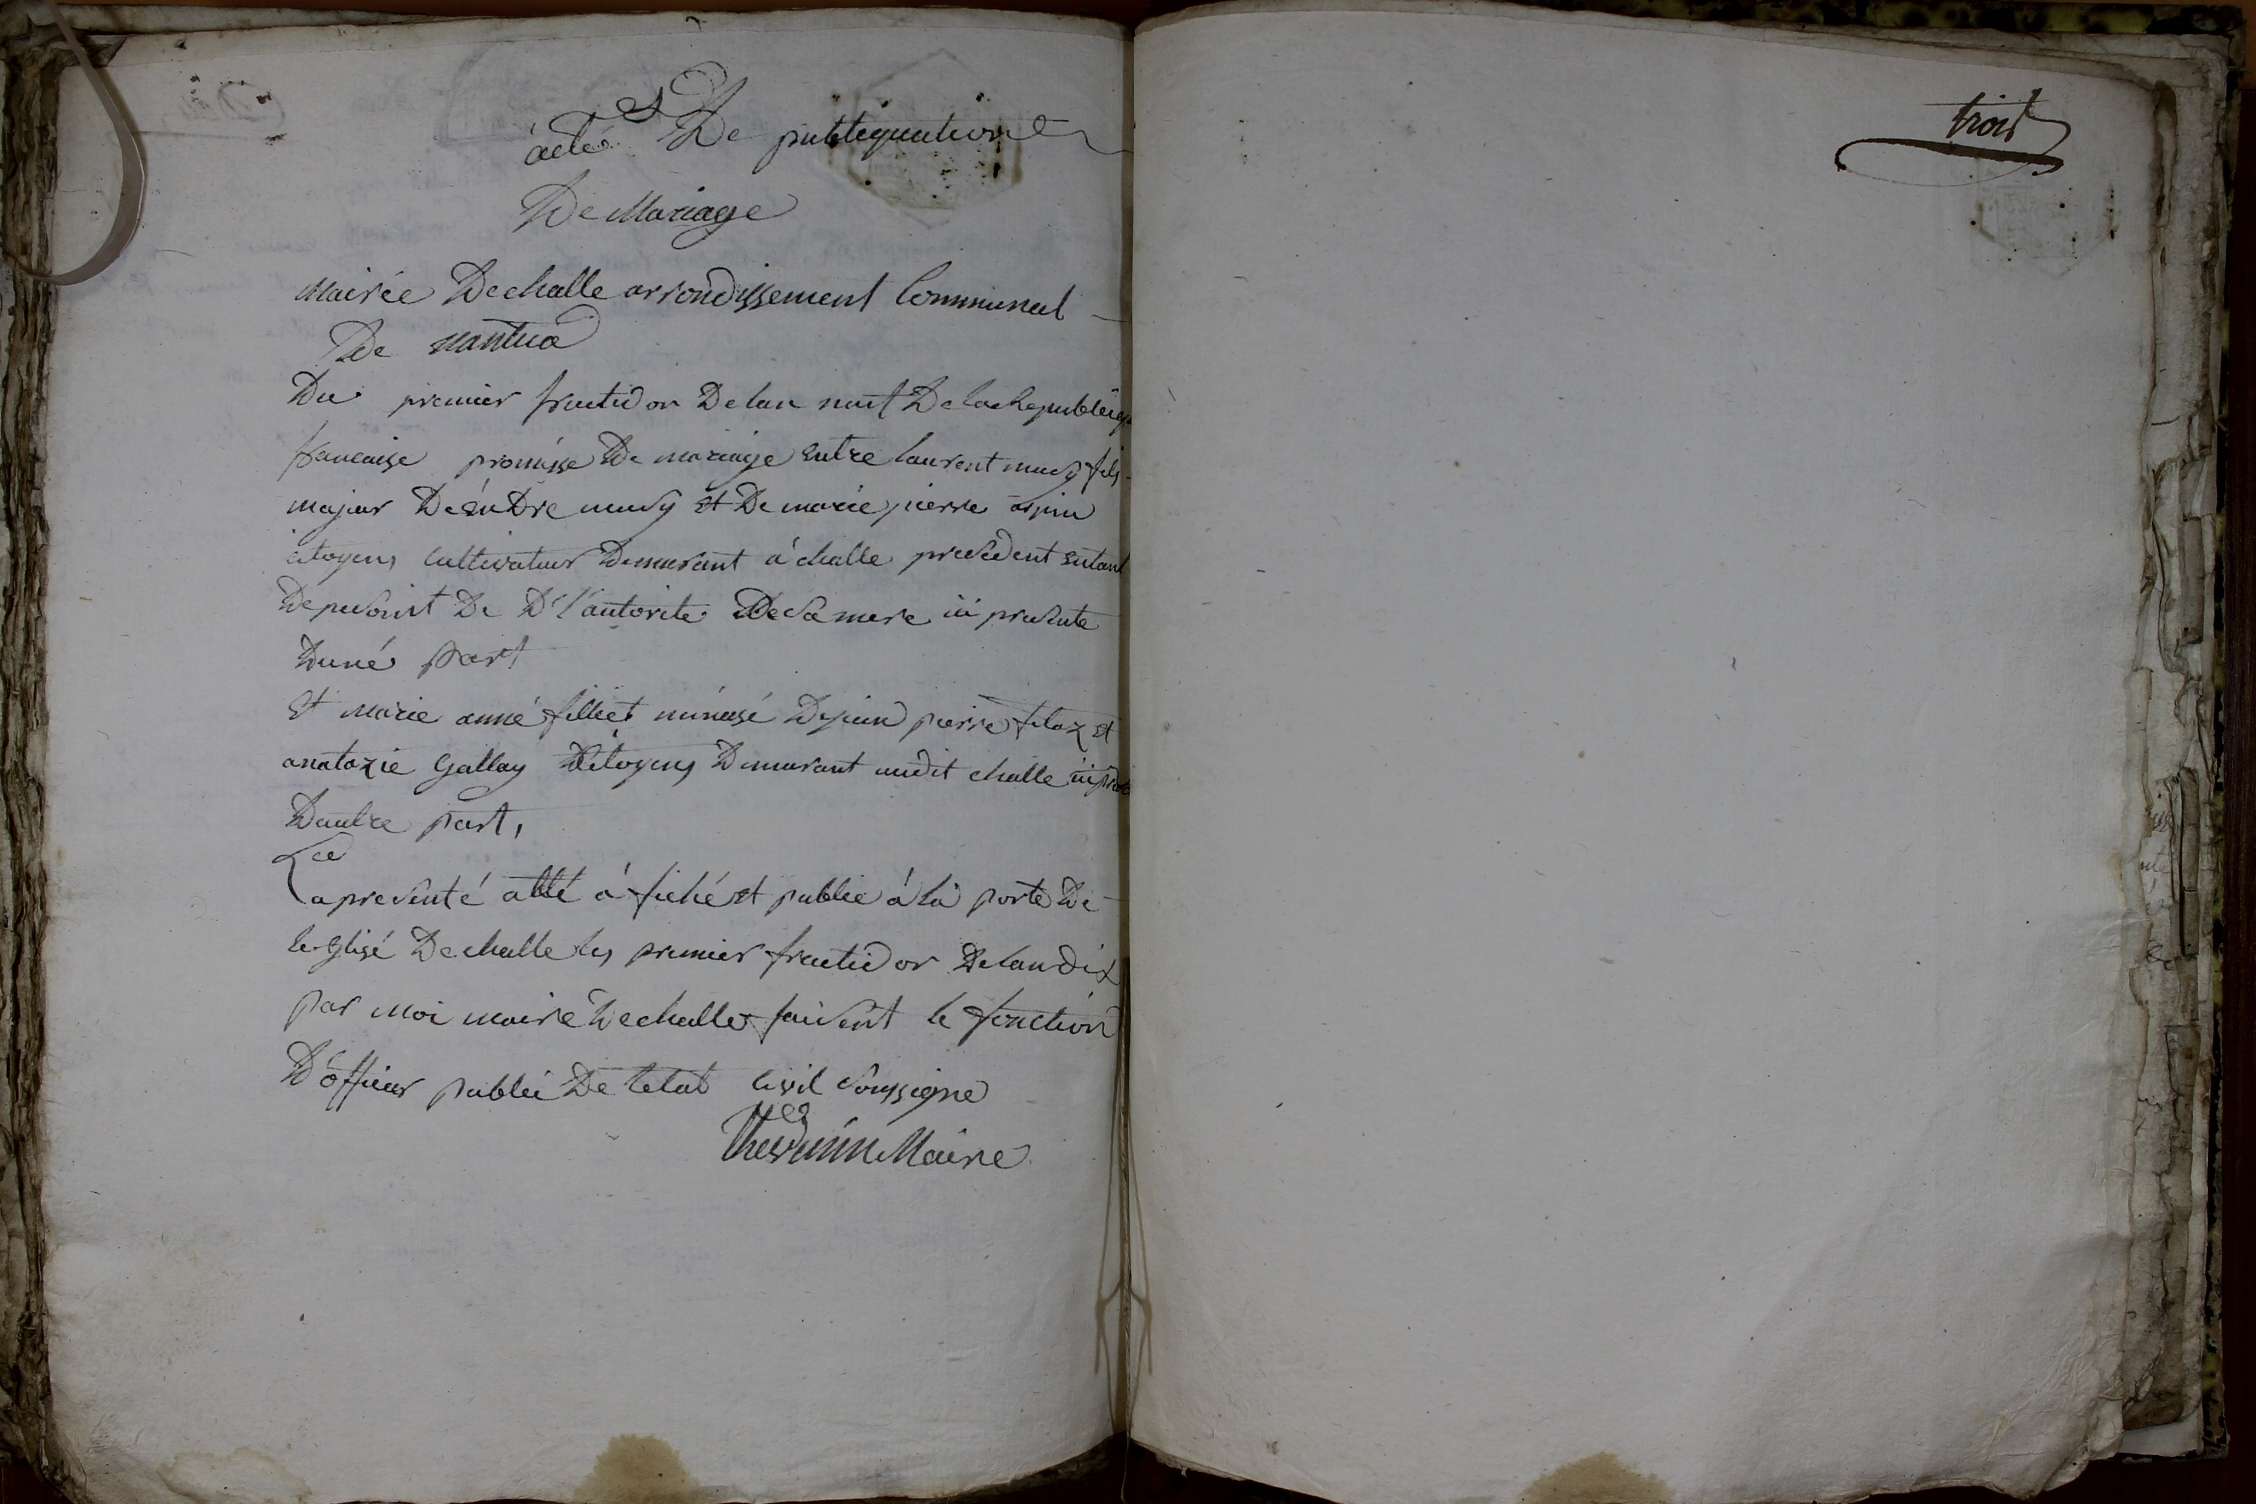 actes De publiquation
De Mariage
Mairée Dechalle arrondissement Communal
De nantua
Du premier fructidor Delan neuf De la Republiq
francaise promisse De mariage entre laurent musy fils
majeur De éndre musy et De marie pierre
citoyens cultivateur Demurant á challe precedent
De D l'autorite De sa mere ici presente
D'uné part
Et Marie anné filliet De jean pierre et
anatazie Gallay Citoyens Demurant audit challe
Dautre part,
La presenté atté á fiché et publie á la porte De
leglisé Dechalle les premier fructidor Delan dix
par moi maire Dechalle faisent le fonction
D'officier public De letat Civil soussigne
Maire
trois